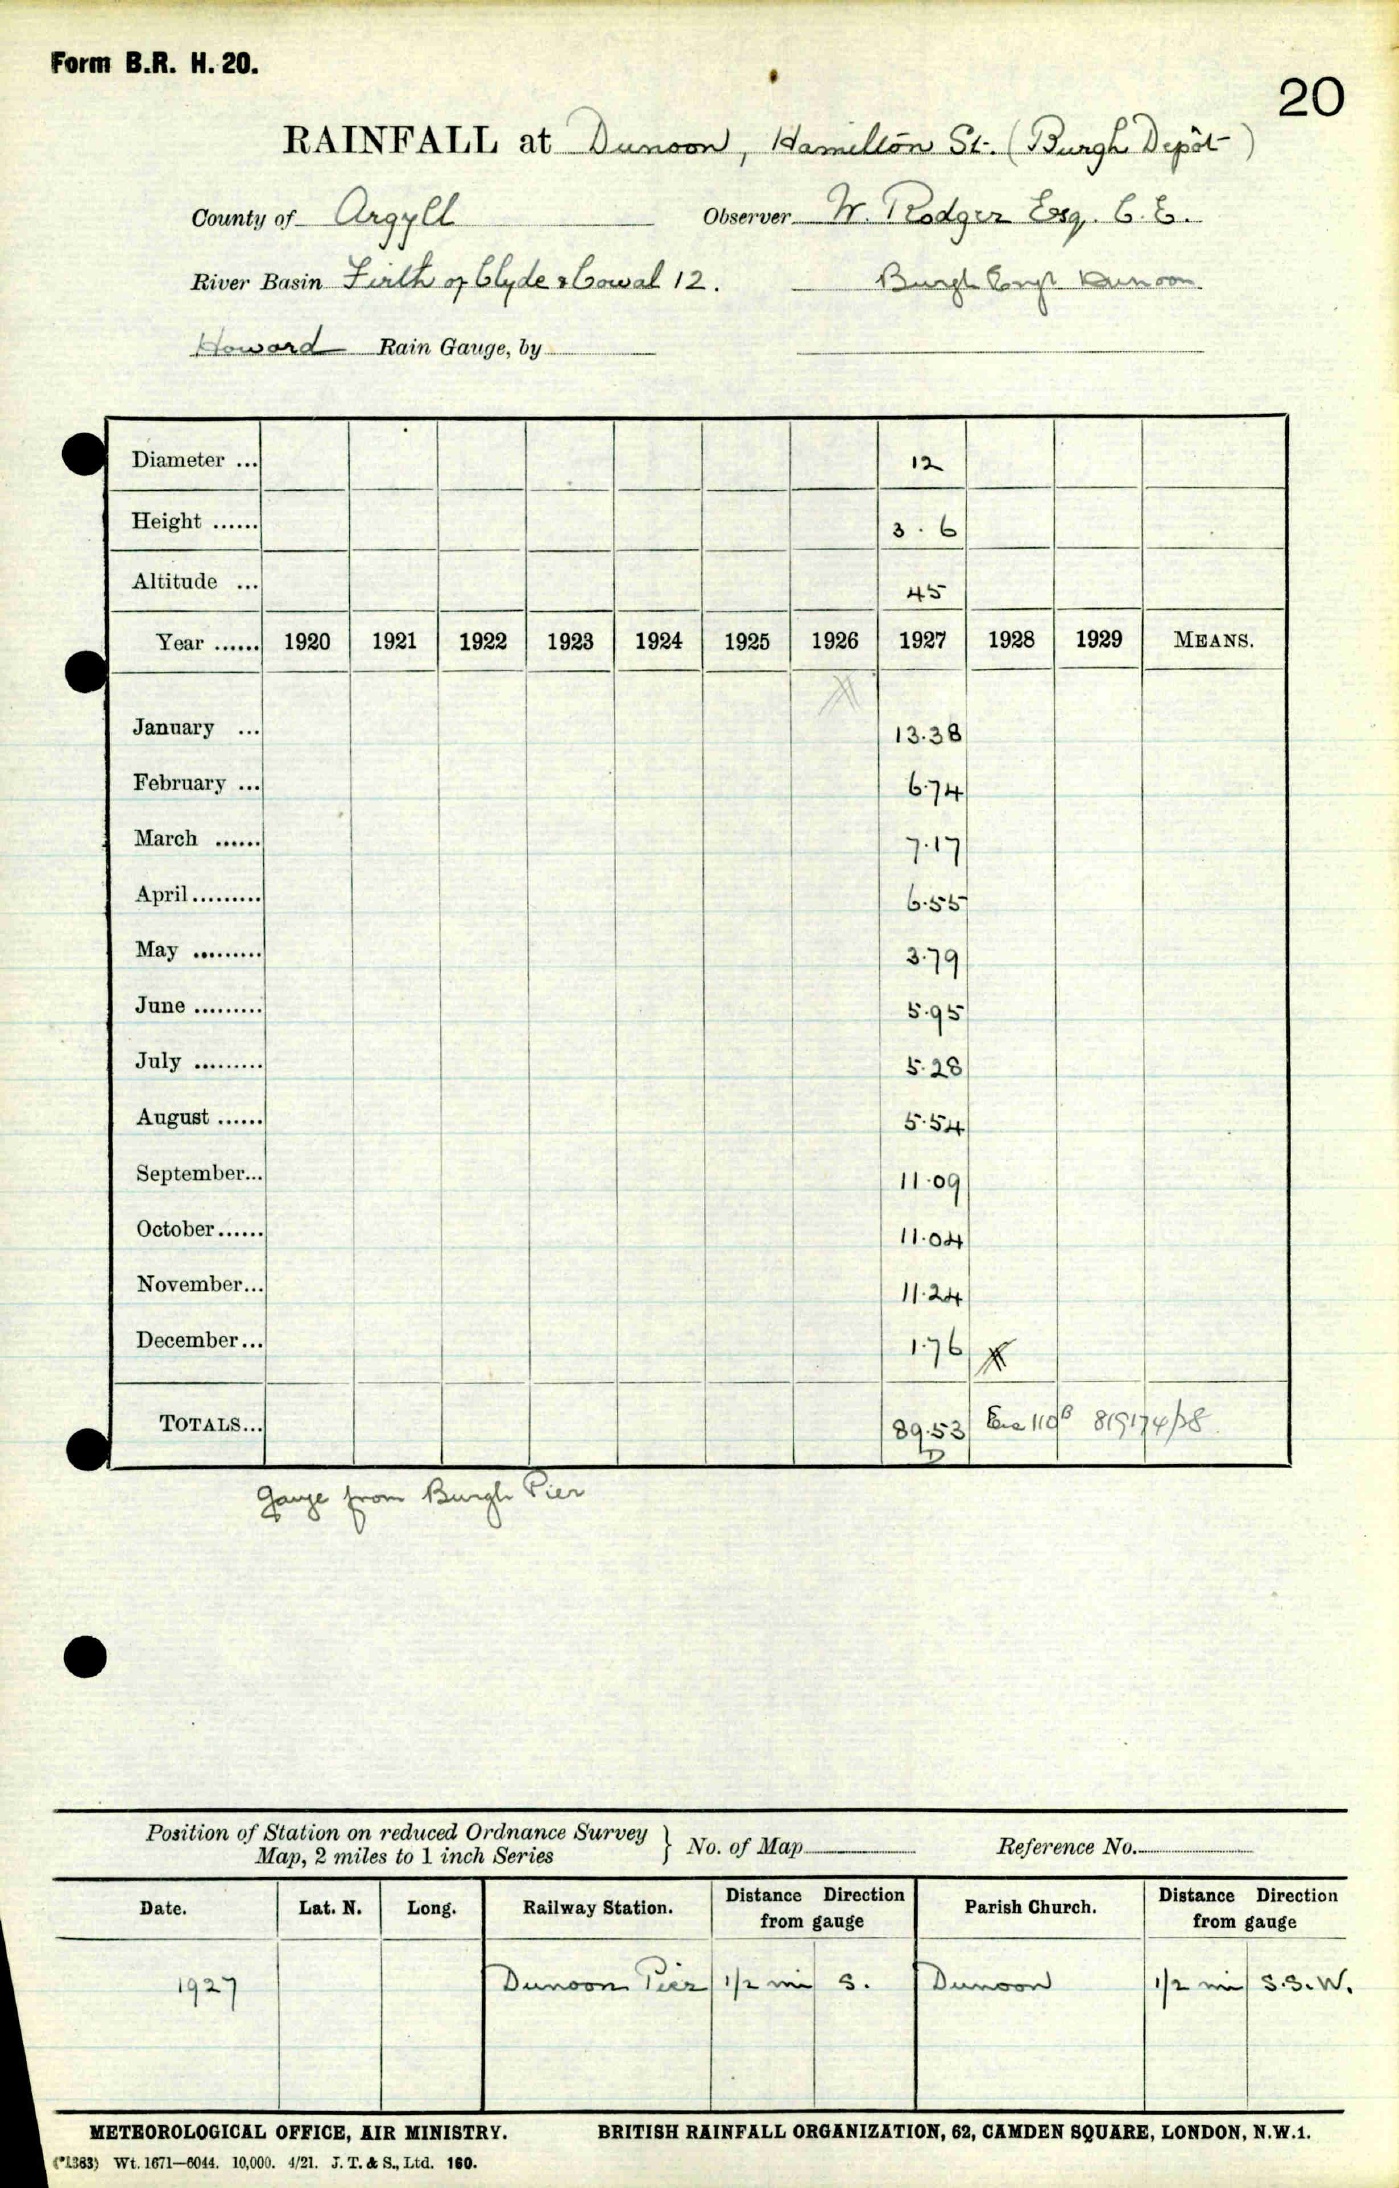 Form B.R. H. 20.
20
RAINFALL at Dunoon, Hamilton St. (Burgh Depôt)
County of Argyll Observer W. Rodger Esq. C.E.
River Basin Firth of Clyde & Cowal 12. Burgh Engr Dunoon
Howard Rain Gauge, by
Diameter ... 12
Height ...... 3 . 6
Altitude ... 45
Year ...... 1920 1921 1922 1923 1924 1925 1926 1927 1928 1929 MEANS.
January ... 13.38
February ... 6.74
March ...... 7.17
April ......... 6.55
May ......... 3.79
June ......... 5.95
July ......... 5.28
August ...... 5.54
September... 11.09
October ...... 11.04
November... 11.24
December... 1.76
TOTALS... 89.53 110B 819174/28
D
Gauge from Burgh Pier
Position of Station on reduced Ordnance Survey
Map, 2 miles to 1 inch Series } No. of Map Reference No.
Date. Lat. N. Long. Railway Station. Distance Direction from gauge Parish Church. Distance Direction from gauge
1927 Dunoon Pier 1/2 mi S. Dunoon 1/2 mi S.S.W.
METEOROLOGICAL OFFICE, AIR MINISTRY. BRITISH RAINFALL ORGANIZATION, 62, CAMDEN SQUARE, LONDON, N.W.1.
(*1383) Wt. 1671—6044. 10,000. 4/21. J. T. & S., Ltd. 160.